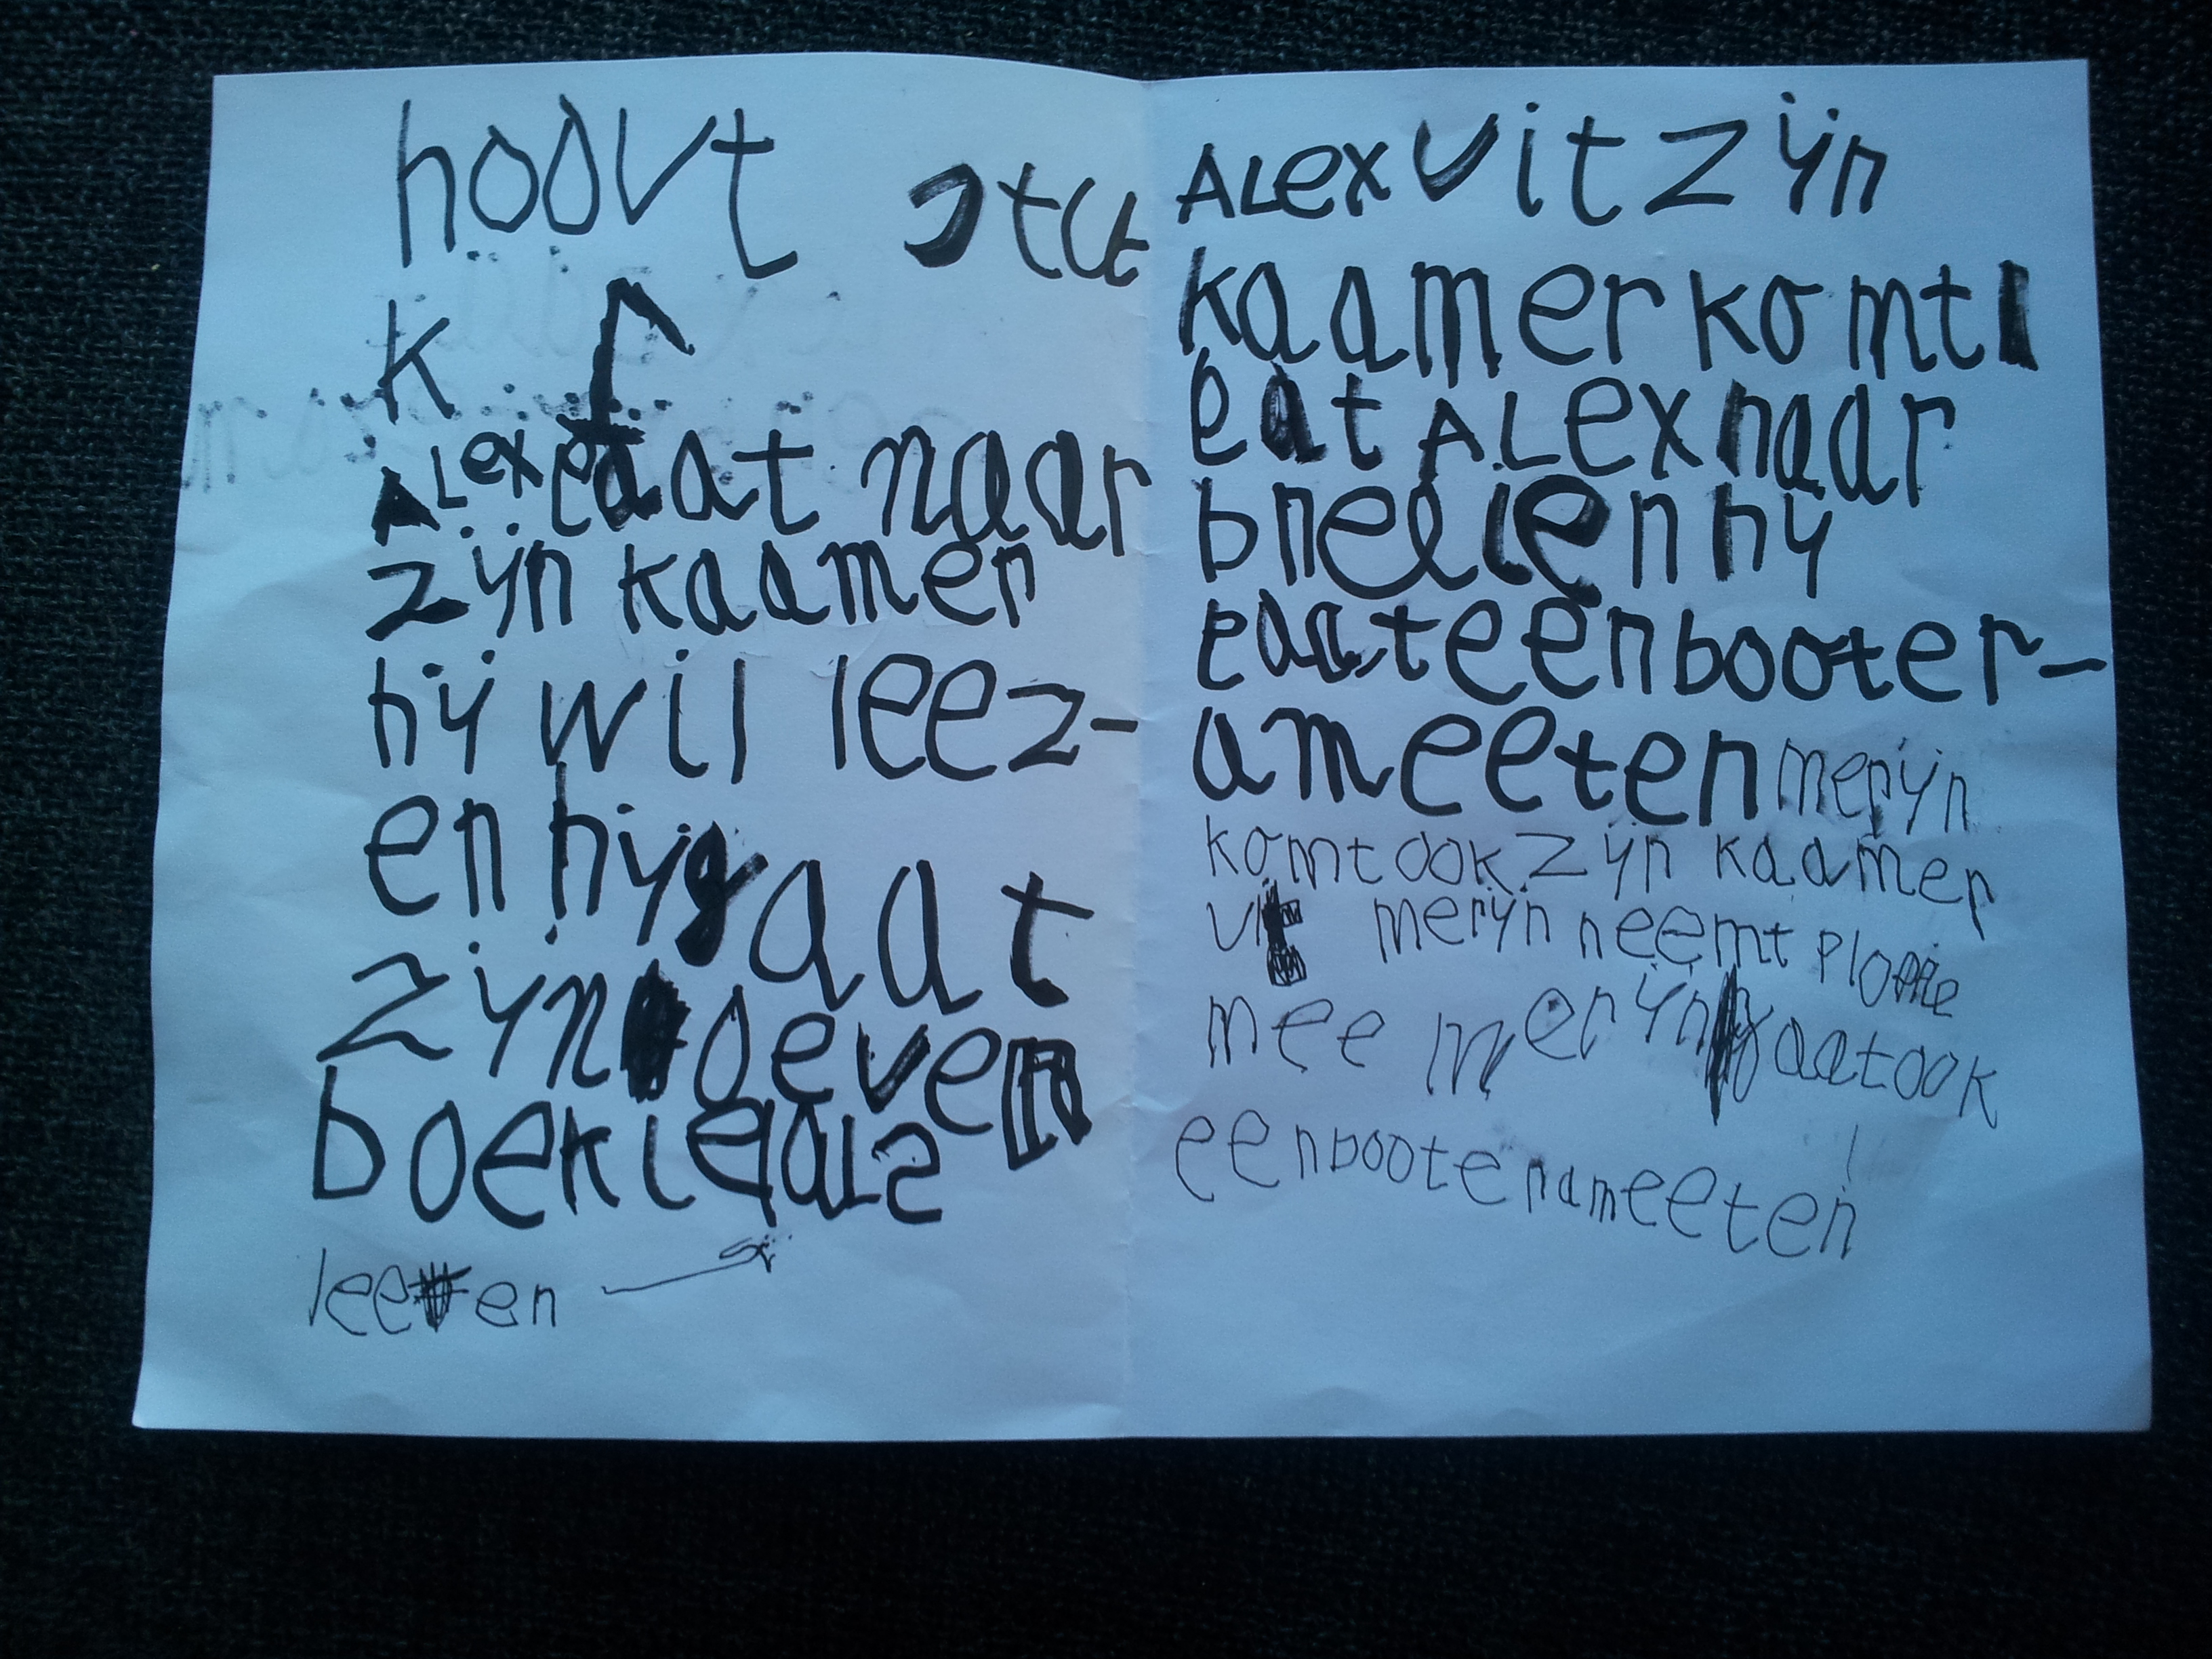 hoovt stuk
k 1
ALex gaat naar
zijn kaamer
hij wil leez-
en hij gaat
zijn oeven
boekje als
leezen
ALex uit zijn
kaamer komt
gat ALex naar
bneden hij
gaat een booter-
am eeten merijn
komt ook zijn kaamer
uit merijn neemt
mee merijn gaat ook
een booteram eeten!